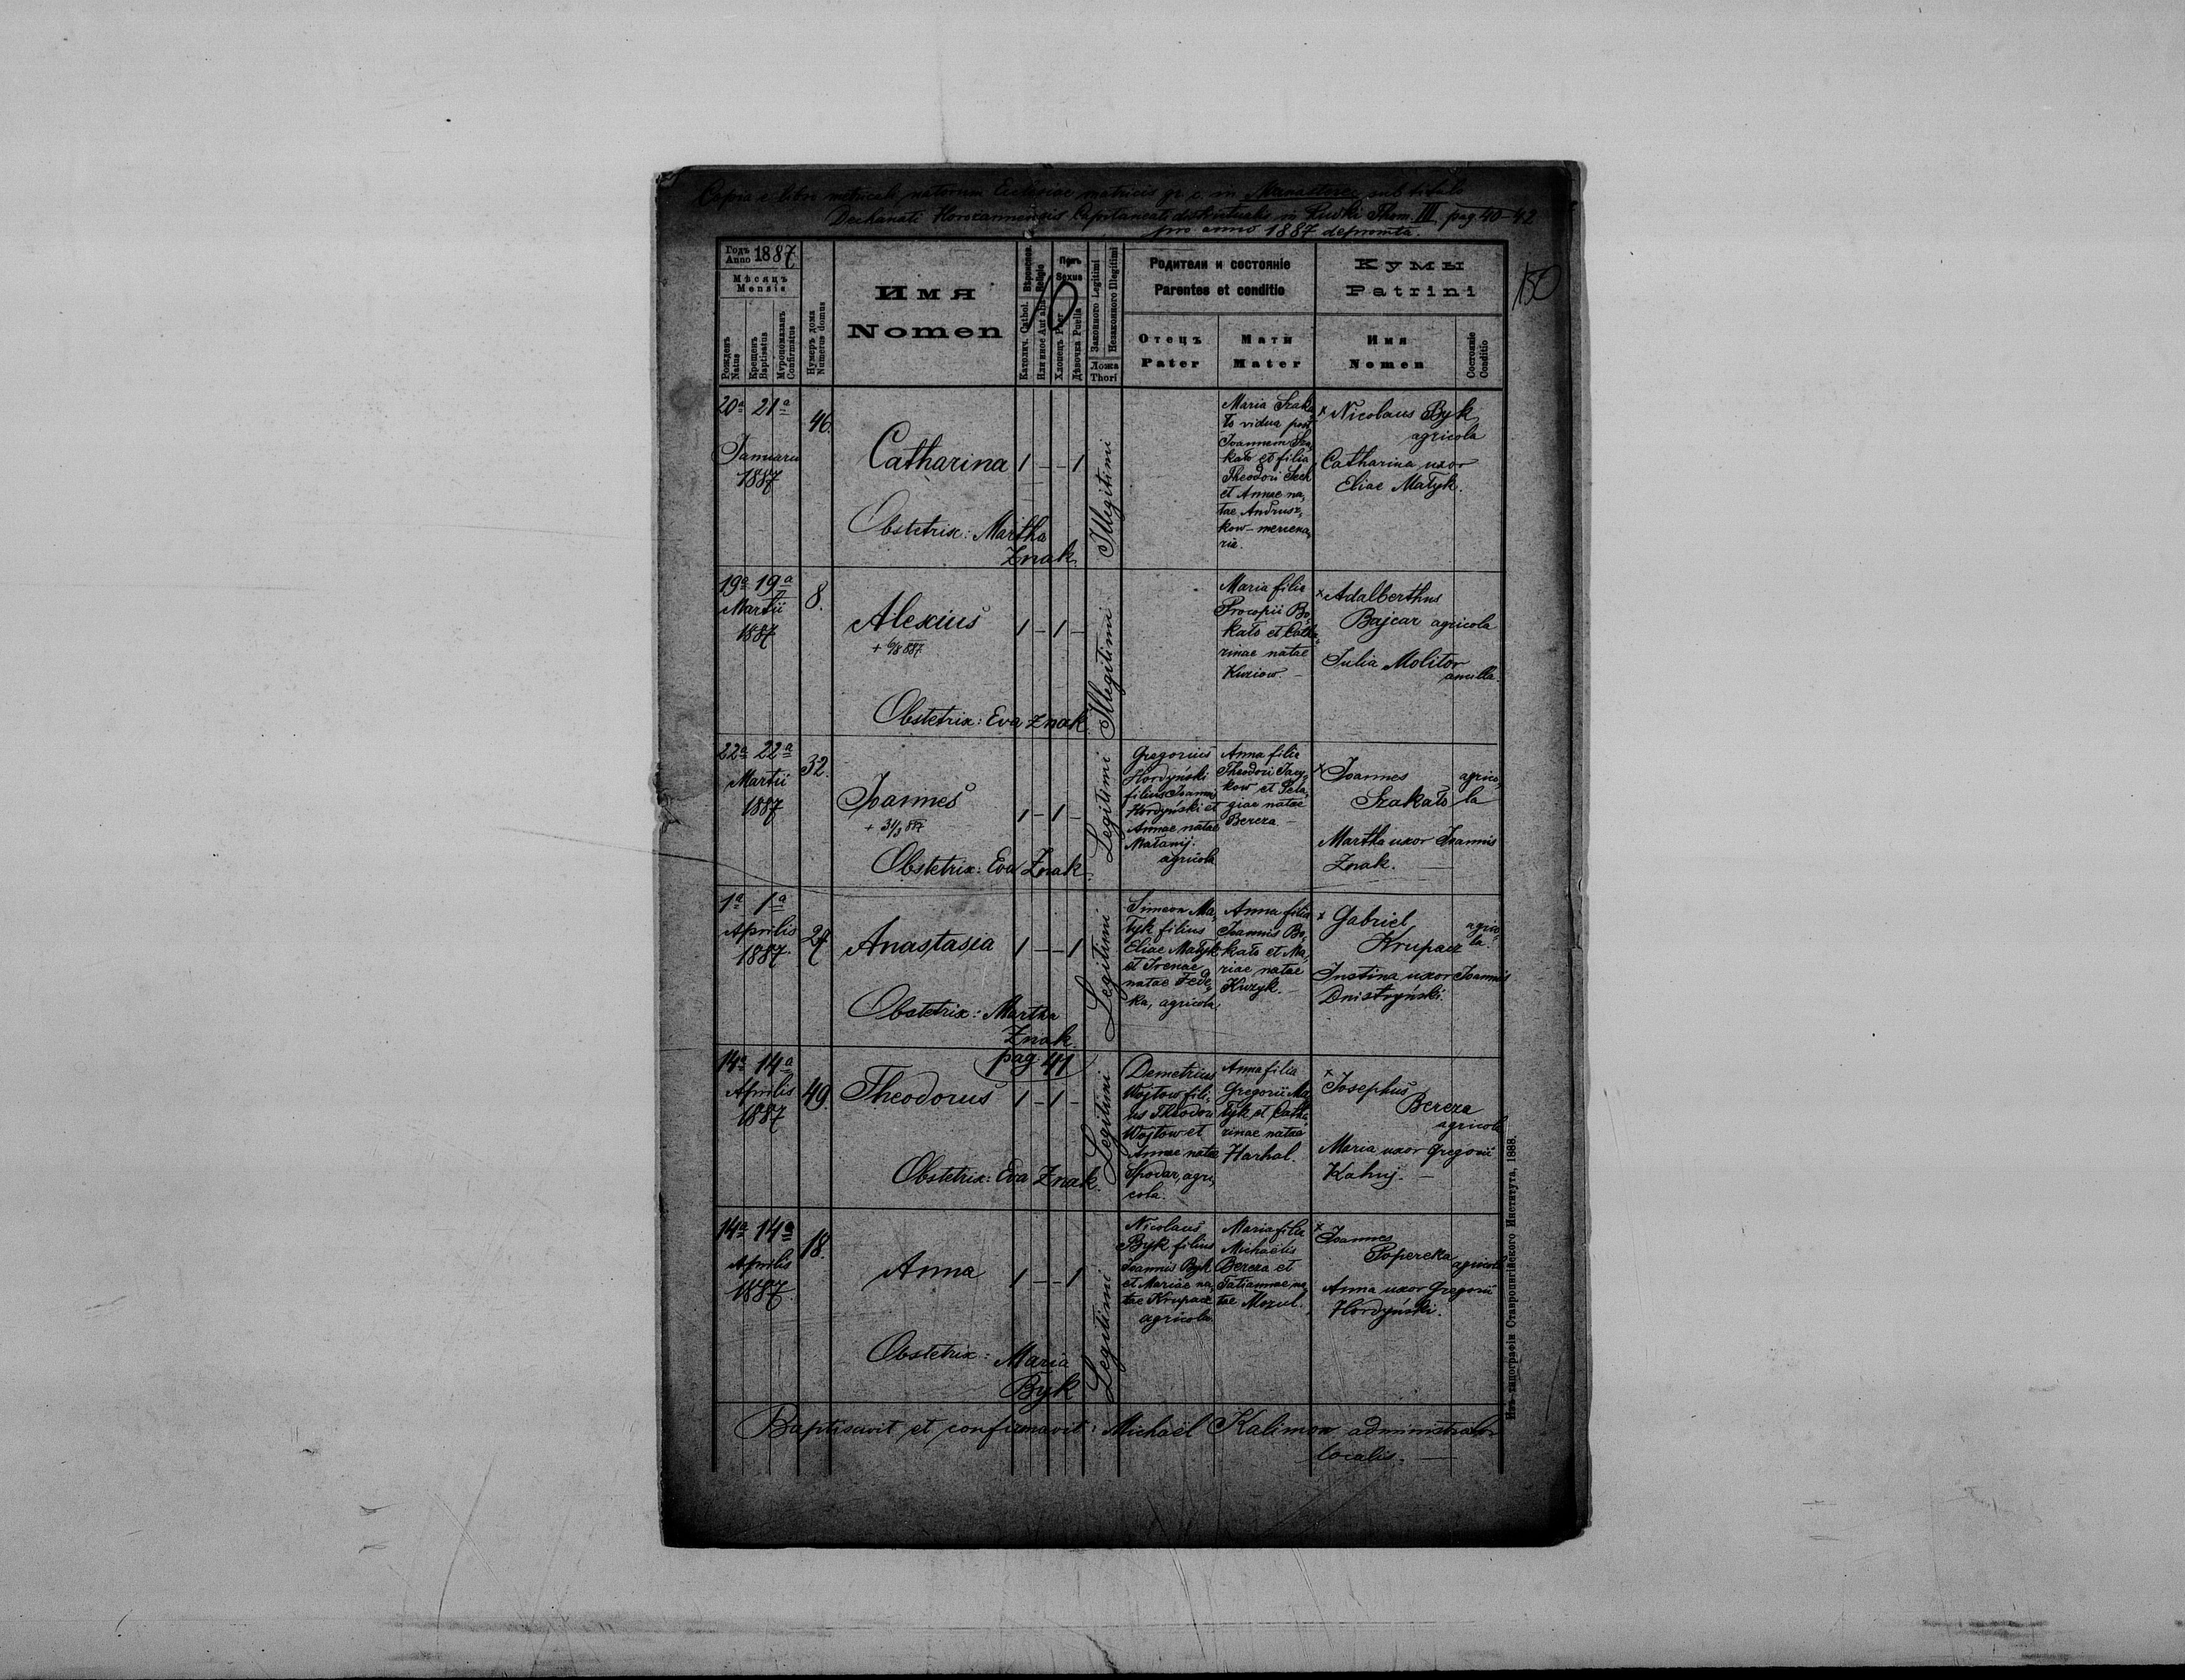 Copia e libro metricali natorum Ecclesiae matricis gr. c. in Manasterec sub titulo
Decanati Horożannensis Capitaneati districtualis in Rudki Thom. III pag. 40-42
pro anno 1887 depromta.
150
Годъ Anno 1887
Мѣсяць Mensis
Рожденъ Natus
Крещенъ Baptisatus
Мѵропомазанъ Confirmatus
Нумеръ дома Numerus domus
Имя
Nomen
Religio
Католич. Cathol.
Или иное Aut alia
Полъ Sexus
Хлопецъ Puer
Дѣвочка Puella
Законного Legitimi
Незаконного Illegitimi
Ложа Thori
Родители и состояніе
Parentes et conditio
Отецъ
Pater
Мати
Mater
Кумы
Patrini
Имя
Nomen
Состояніе Conditio
20a 21a
Januarii
1887
46.
Catharina 1 – – 1
Obstetrix: Martha
Znak.
Illegitimi
Maria Szaka
ło vidua post
Joannem Sza
kało et filia
Theodori Sech
et Annae na,
tae Andrusz,
kow – mercena,
ria.
x Nicolaus Byk
agricola
Catharina uxor
Eliae Matyk.
19a 19a
Martii
1887
8.
Alexius 1 – 1 –
Obstetrix: Eva Znak
Illegitimi
Maria filia
Procopii Bo,
kało et Catha,
rinae natae
x Adalberthus
Bajcar agricola
Julia Molitor
ancilla.
22a 22a
Martii
1887
32.
Joannes 1 – 1 –
Obstetrix: Eva Znak.
Legitimi
Gregorius
Hordyński
filius Joannis
Hordyński et
Annae natae
Małanij.
agricola
Anna filia
Theodori Jacy,
kow et Pela,
giae natae
Bereza –
x Joannes agrico,
Szakało la
Martha uxor Joannis
Znak. –
1a 1a
Aprilis
1887.
27
Anastasia 1 – – 1
Obstetrix: Martha
Znak.
Legitimi
Simeon Ma,
tyk filius
Eliae Matyk
et Irenae
natae Fedy,
ka, agricola,
Anna filia
Joannis Bo,
kało et Ma,
riae natae
Kuzyk. –
x Gabriel agrico,
Krupacz la.
Justina uxor Joannis
Dnistryński.
pag. 41
14a 14a
Aprilis
1887
49.
Theodorus 1 – 1 –
Obstetrix: Eva Znak.
Legitimi
Demetrius
Wojtow fili,
us Theodori
Wojtow et
Annae natae
Spodar, agri,
cola.
Anna filia
Gregorii Ma
tyk et Catha,
rinae natae
Harhal.
x Josephus
Bereza
agricola
Maria uxor Gregorii
14a 14a
Aprilis
1887.
18.
Anna 1 – – 1
Obstetrix: Maria
Byk
Legitimi
Nicolaus
Byk filius
Joannis Byk
et Mariae na,
tae Krupacz
agricola.
Maria filia
Michaelis
Bereza et
Tatiannae na,
tae Mozul.
x Joannes
Popereka agricola
Anna uxor Gregorii
Hordyński.
Baptisavit et confirmavit: Michaël Kalimon administrator
localis. –
Изъ типографіи Ставропигійского Института, 1888.